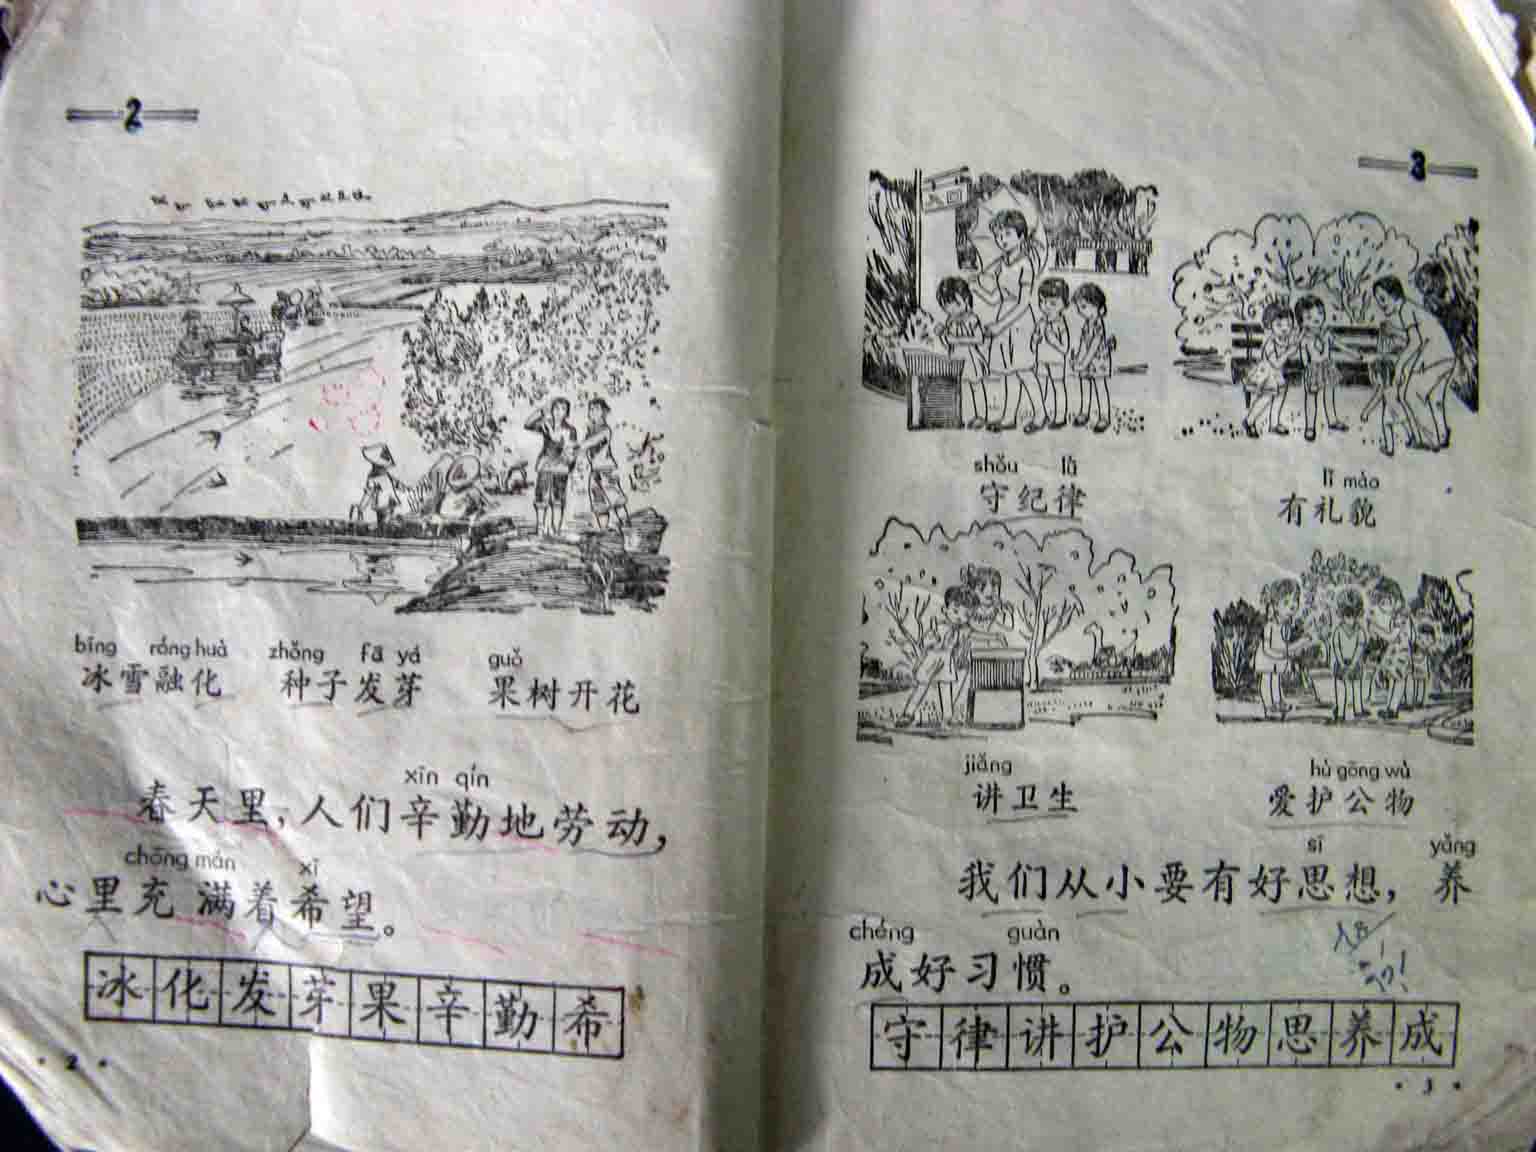 2
bīng róng huà zhǒng fā yá guǒ
冰雪融化 种子发芽 果树开花
xīn qín
春天里，人们辛勤地劳动，
chōng mǎn xī
心里充满着希望。
冰化发芽果辛勤希
· 2 ·
3
入口
shǒu lǜ lǐ mào
守纪律 有礼貌
jiǎng hù gōng wù
讲卫生 爱护公物
sī yǎng
我们从小要有好思想，养
chéng guàn
成好习惯。
守律讲护公物思养成
· 3 ·